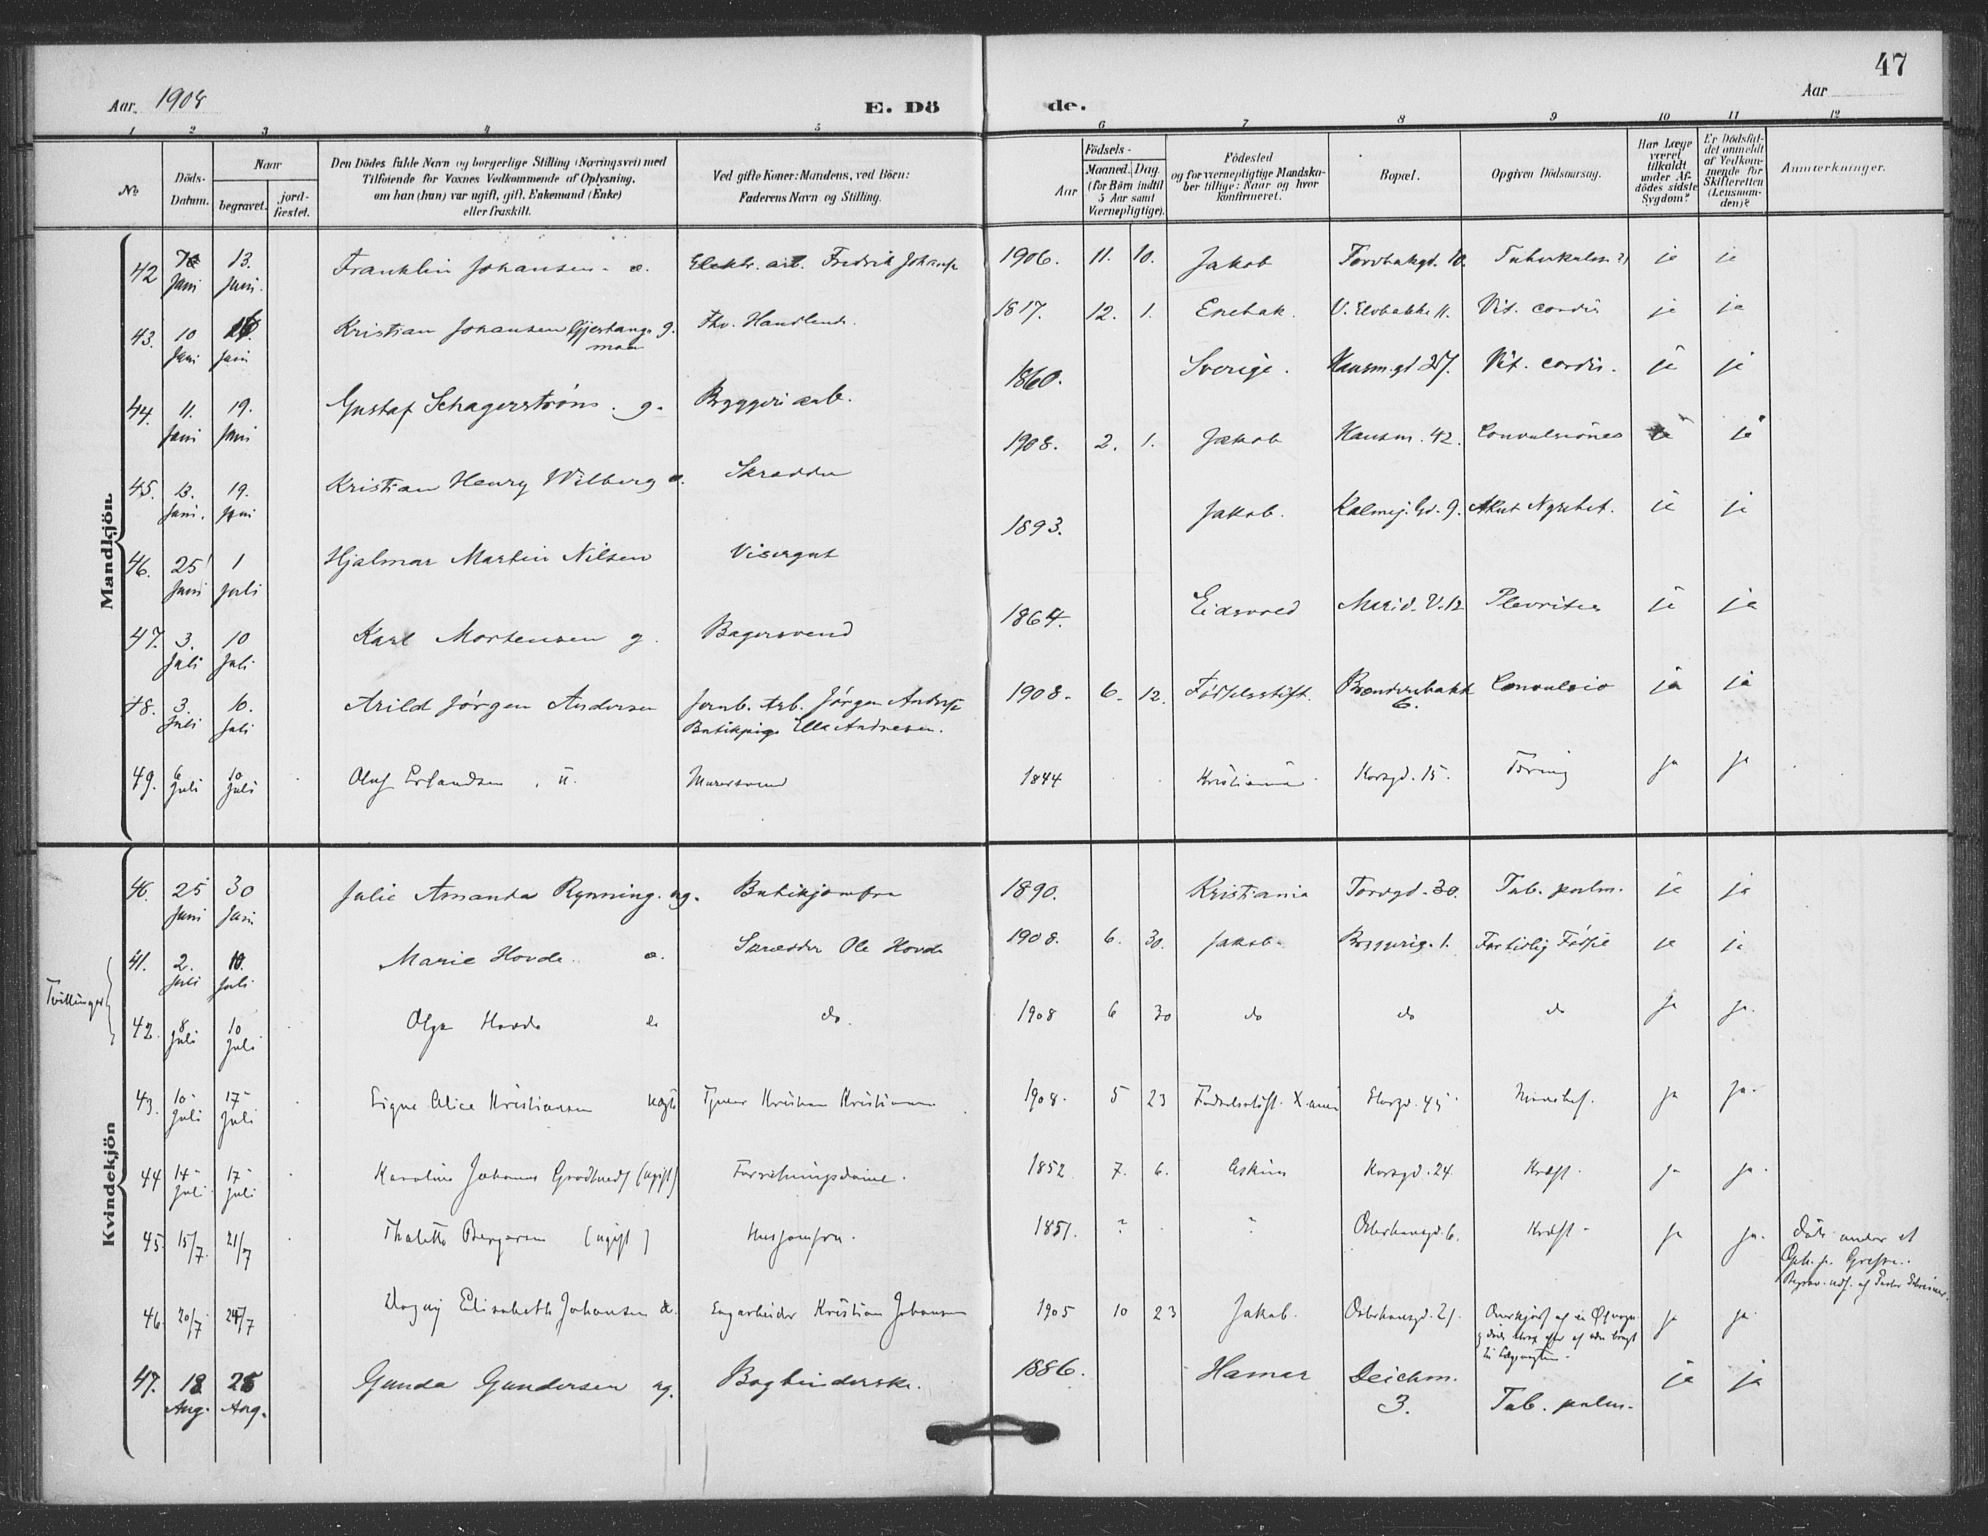 47
Aar 1908
E. Dö de.
Aar
1 2 3 4 5 6 7 8 9 10 11 12
No
Döds-Datum.
Naar
begravet.
jord-fæstet.
Den Dödes fulde Navn og borgerlige Stilling (Næringsvei) med
Tilföiende for Voxnes Vedkommende af Oplysning,
om han (hun) var ugift, gift, Enkemand (Enke)
eller fraskilt.
Ved gifte Koner: Mandens, ved Börn:
Faderens Navn og Stilling.
Födsels-
Aar
Maaned. Dag.
(for Børn indtil
5 Aar samt
Værnepligtige).
Födested
og for værnepligtige Mandska-
ber tillige: Naar og hvor
konfirmeret.
Bopæl.
Opgiven Dödsaarsag.
Har Læge
været
tilkaldt
under Af-
dödes sidste
Sygdom?
Er Dödsfal-
det anmeldt
af Vedkom-
mende for
Skifteretten
(Lensman-
den)?
Anmærkninger.
Mandkjön.
42 Juni 13. Juni. Franklin Johansen - æ. Elektr. arb. Fredrik Johans 1906. 11. 10. Jakob Torvbakgd. 10. Tuberkulose ja ja
43. 10 Juni Juni Kristian Johansen Gjestang g. Fhv. Handlende. 1817. 12. 1. Enebak. V. Elvbakke 11. Vit. cordis ja ja
44. 11. Juni 19. Juni Gustaf Schagerstrøm. g. Bryggeriarb. 1860. Sverige. Hausm.gd 27. Vit. cordis. ja ja
45. 13. Juni. 19. Juni Kristian Henry Wilberg æ. Skrædder 1908. 2. 1. Jakob Hausm. 42. Convulsiones ja ja
46. 25 Juni 1 Juli Hjalmar Martin Nilsen Visergut 1893. Jakob. Kalmej. Gd. 9. Akut Nyrebet. ja ja
47. 3. Juli 10 Juli Karl Mortensen g. Bagersvend 1864. Eidsvold Marid. V. 12 Plevritis ja ja
48. 3. Juli 10. Juli Arild Jørgen Andersen Jernb. Arb. Jørgen Anders
Butikpige Ella Andresen. 1908. 6. 12. Fødselsstift. Brenneribakk 6. Convulsio ja ja
49. 6 Juli 10 Juli Oluf Erlandsen . u. Murersvend 1844 Kristiania Korsgd. 15. Tæring ja ja
Kvindekjön
40. 25 Juni 30 Juni Julie Amanda Rynning. ug. Butikjomfru 1890. Kristiania Torvgd. 30. Tub. pulm. ja ja
Tvillinger
41. 2. Juli 10. Juli Marie Hovde æ. Skrædder Ole Hovde 1908. 6. 30. Jakob. Bryggerig. 1. Fortidlig Fødsel ja ja
42. 8 Juli 10 Juli Olga Hovde do do. 1908 6 30 do do do ja ja.
43. 10 Juli 17 Juli Signe Alice Kristiansen uægte Kristian Kristiansen 1908. 5 23 Fødselsstift. X ania Storgd. 45 ja ja.
44 14 Juli 17 Juli Karoline Johanne (ugift) Forretningsdame. 1852 7. 6. Askim Korsgd. 24 Kræft. ja ja.
45. 15/7. 21/7 Thalette Bergersen (ugift) Husjomfru. 1851. ? ? Osterhausgd. 6. Kræft. ja ja. Døde under et
46. 20/7 24/7 Dagny Elisabeth Johansen æ. Kristian Johansen 1905 10 23 Jakob. Osterhausgd. 21. Overkjørt af en ja ja
47. 18 Aug. 25 Aug. Gunda Gundersen ug. Bogbinderske. 1886. Hamar Deichm. 3. Tub. pulm. ja ja